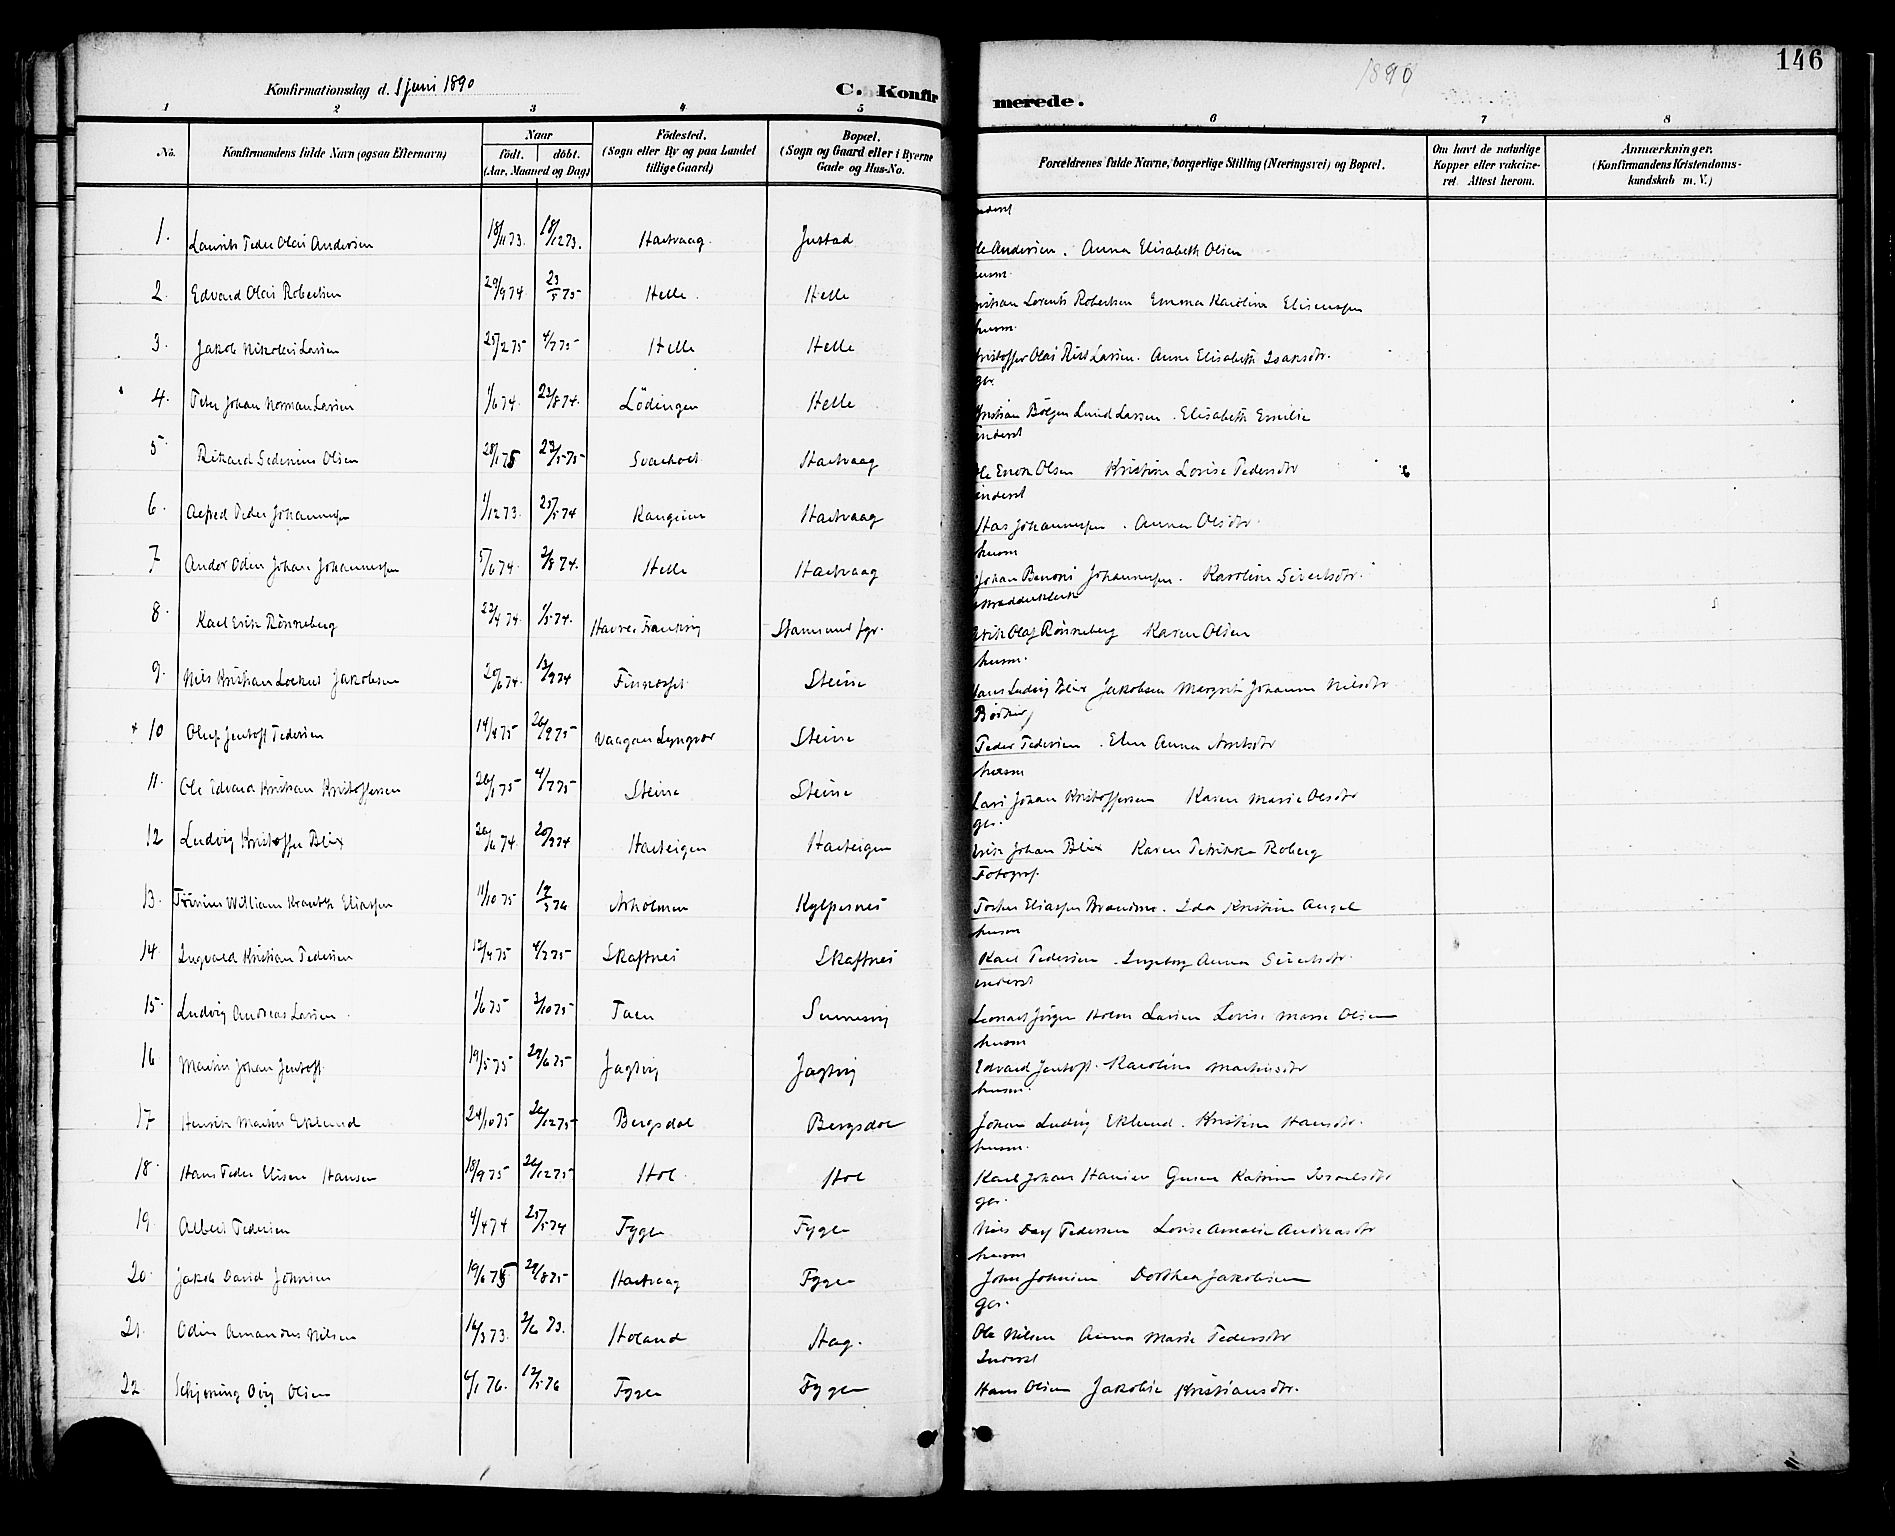 146
1890
Konfirmationsdag d. 1 juni 1890
C. Konfirmerede.
1 2 3 4 5 6 7 8
No.
Konfirmandens fulde Navn (ogsaa Efternavn)
Naar
födt. döbt.
(Aar, Maaned og Dag)
Födested.
(Sogn eller By og paa Landet
tillige Gaard)
Bopæl.
(Sogn og Gaard eller i Byerne
Gade og Hus-No.
Forældrenes fulde Navne, borgerlige Stilling (Næringsvei) og Bopæl.
Om havt de naturlige
Kopper eller vakcine-
ret. Attest herom.
Anmærkninger.
(Konfirmandens Kristendoms-
kundskab m. V.)
1. Laurits Peder Olai Andersen 18/11 73. 18/12 73. Hartvaag. Justad Andersen. Anna Elisabeth Olsen
husm.
2. Edvard Olai Robertsen 29/9 74 23/5 75 Helle Helle Lorents Robertsen Emma Karoline
husm.
3. Jakob Nikolai Larsen 25/2 75 4/7 75 Helle Helle Kristoffer Olai Larsen. Anna Elisabeth Isaksdtr.
4. Peter Johan Norman Larsen 1/6 74. 23/8 74. Lödingen Helle Kristian Lund Larsen. Elisabeth Emilie
inderst
5. Rikard Olsen 28/1 75 23/5 75 Hartvaag Ole Olsen Kristine Lovise Pedersdtr
inderst
6. Alfred Peder Johannessen 1/12 73. 25/5 74 Hartvaag Johannessen. Anna Olsdtr.
husm
7. Andor Odin Johan Johannessen 5/6 74. 2/8 74. Helle Hartvaag Johan Benoni Johannessen. Karoline Sivertsdtr.
8. Karl Erik Rönneberg 22/4 74 1/5 74. Stamsund Erik Olaf Rönneberg Karen Olsen
husm.
9. Nils Kristian Jakobsen 20/6 74. 13/9 74 Steine Hans Ludvig Blix Jakobsen Margrit Johanna Nilsdtr
10 Oluf Jentoft Pedersen 14/4 75 26/9 75 Vaagan Lyngvær Steine Peder Pedersen. Anna
husm
11. Ole Edvard Kristian Kristoffersen 26/1 75 4/7 75 Steine Steine Lars Johan Kristoffersen Karen Marie Olsdtr
12 Ludvig Kristoffer Blix 26/6 74. 20/9 74 Harteigen Harteigen Erik Johan Blix Karen Petrikke Roberg
Fotograf.
13. William Eliassen 11/10 75 Arholmen Kylpesnes Eliassen Ida Kristine Angel
husm
14. Ingvald Kristian Pedersen 12/4 75 4/7 75 Skaftnes Skaftnes Karl Pedersen. Ingeborg Anna Sivertsdtr.
inderst
15. Ludvig Andreas Larsen 1/6 75 3/10 75 Leonart Jörgen Holm Larsen Lovise Marie Olsen
husm
16 Martin Johan Jentoft 19/5 75 29/6 75 Jagtvig Jagtvig Edvard Jentoft. Karoline Martinsdtr
husm.
17 Henrik Martin Eklund 24/10 75 26/12 75 Bergsdal Bergsdal Johan Ludvig Eklund. Kristine Hansdtr.
husm.
18. Hans Peder Hansen 18/9 75 26/12 75 Hol Hol Karl Johan Hansen Katrine Israelsdtr
19. Albert Pedersen 4/4 74 25/5 74 Fygle Fygle Nils Pedersen Lovise Amalie Andreasdtr
husm
20. Jakob David Johnsen 19/6 75 29/8 75 Hartvaag Fygle John Johnsen Dorthea Jakobsen
21. Odin Amandus Nilsen 16/3 73. 2/6 73. Holand Hag. Ole Nilsen Anna Marie Pedersdtr
Inderst
22. Schjerning Olsen 6/1 76. 12/5 76 Fygle Fygle Hans Olsen Jakobie Kristiansdtr.